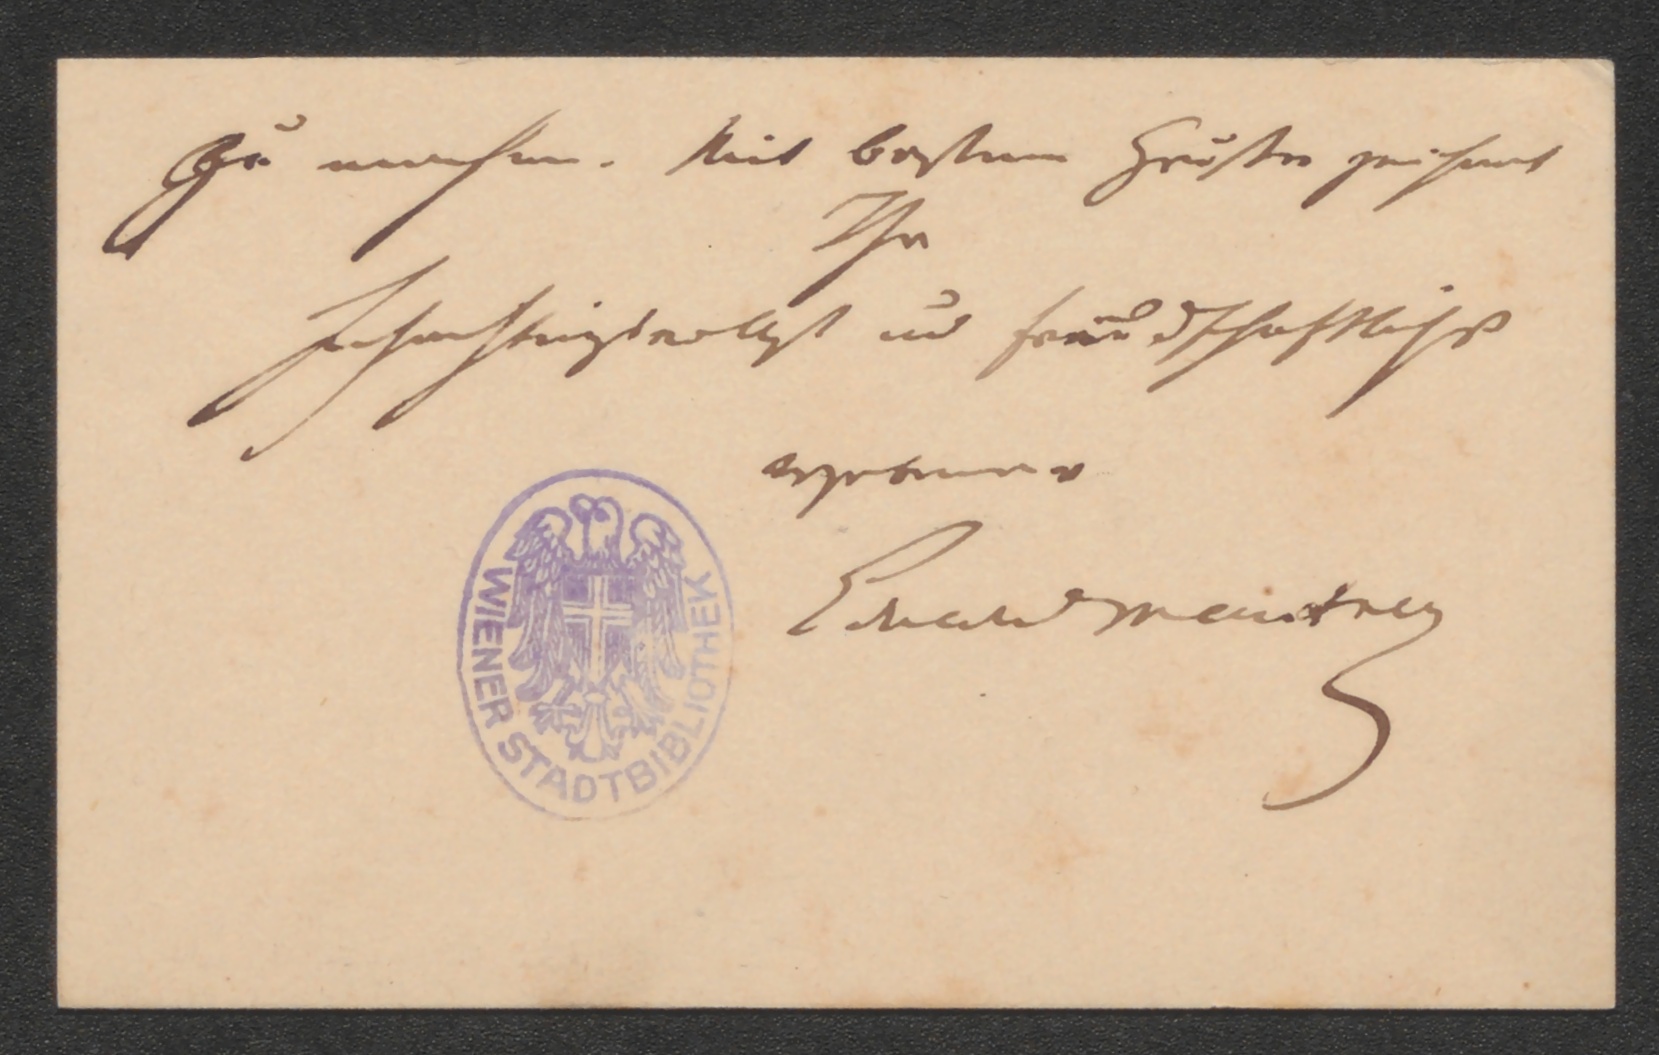 zu machen. Mit besten Grüßen zeichnet
Ihr
hochachtungsvollst und freundschaftlichst
ergebener
Eduard Mautner
WIENER STADTBIBLIOTHEK